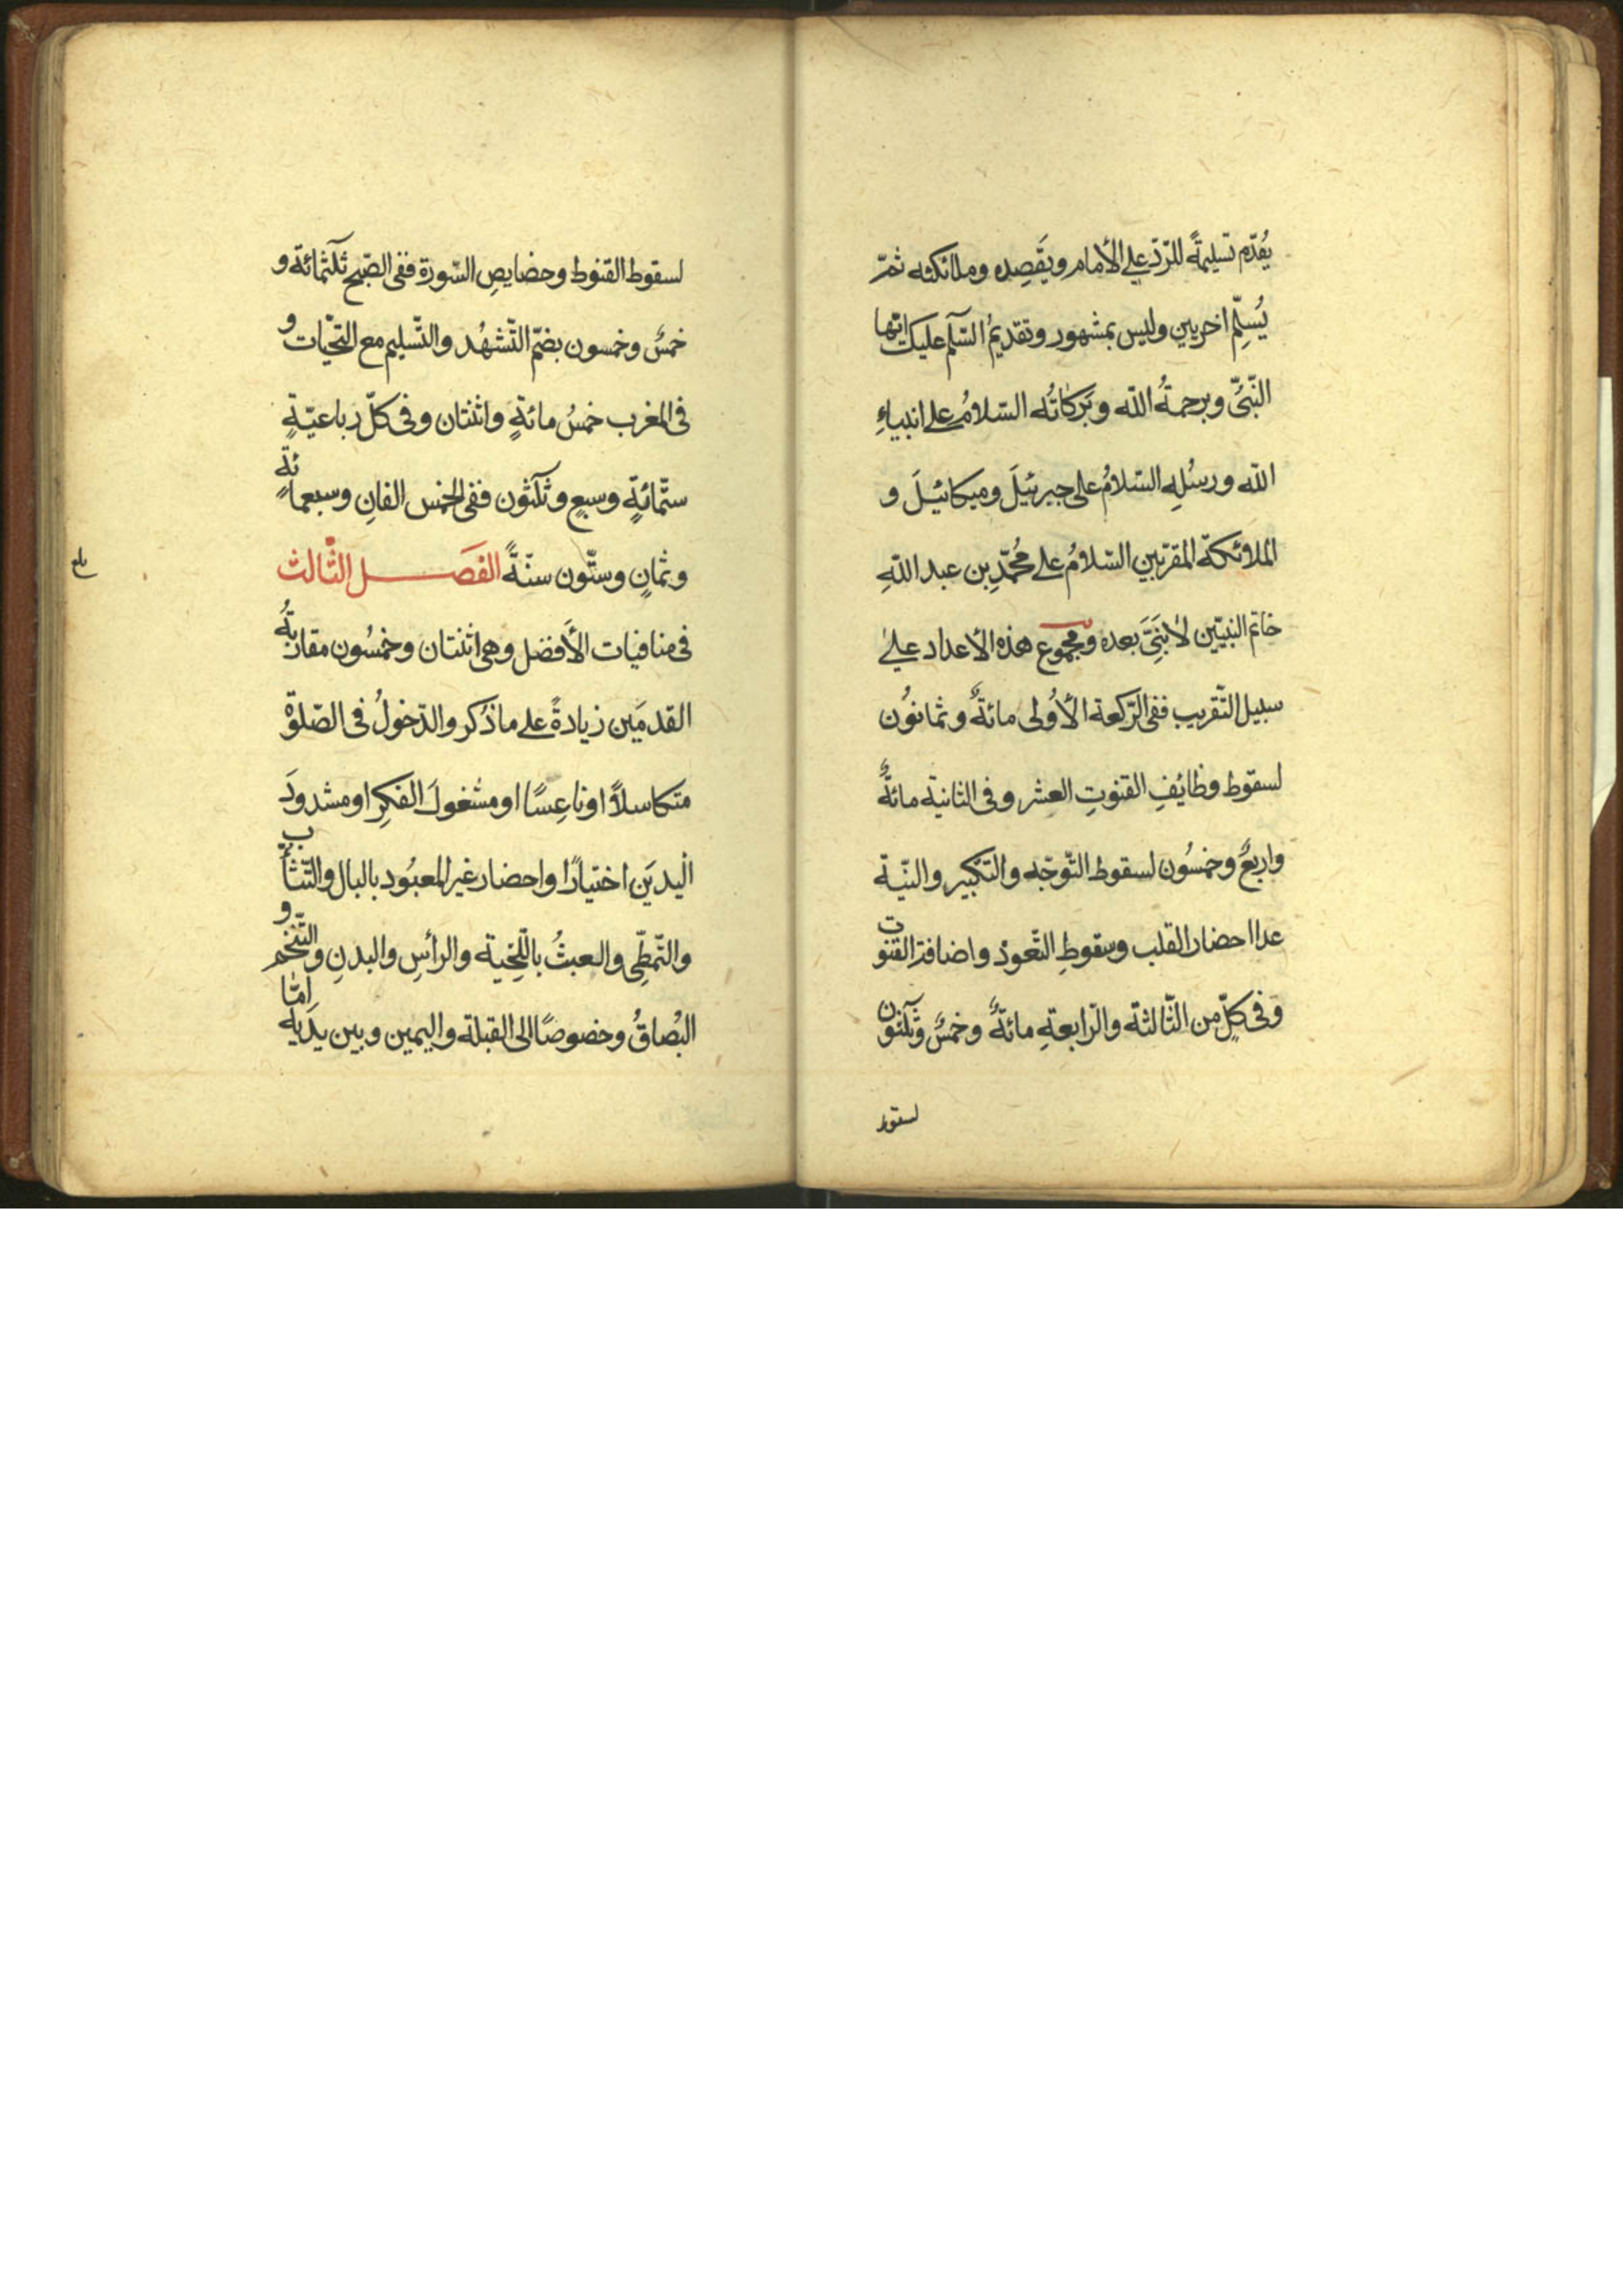 يُقدّم تسليمةً للرّدّ على الأمام ويَقصِده وملائكته ثمّ
يُسلّم اخريين وليس بمشهور وتقديمُ السّلٰم عليك ايّها
النّبىُّ ورحمةُ الله وبَركاتُه السّلامُ على انبياءِ
الله ورسُلِه السّلامُ على جبرئيلَ وميكائيلَ و
الملائكة المقرّبين السّلامُ على مُحمّدِ بن عبد اللهِ
خاتم النبيّين لا نَبىَّ بعده ومجموع هذه الأعداد على
سبيل التّقريب ففى الرّكعة الأُولى مائةٌ وثمانوُن
لسقوط وظايُفِ القنوتِ العشر وفى الثانية مائةٌ
واربعٌ وخمسُون لسقوط التّوجّه والتكبير والنيّة
عدا احضار القلب وسقوطِ التّعوذ واضافة القنوت
وفى كلٍّ من الثّالثة والرّابعةِ مائةٌ وخمسٌ وثلٰثون
لسقوط
لسقوط القنوط وخصايصِ السّورة ففى الصّبح ثلٰثمائة و
خمسٌ وخمسون بضمّ التّشهُد والتّسليم مع التحيّات و
فى المغرب خمسُ مائةٍ واثنتان وفى كلّ رباعيّةٍ
ستّمائةٍ وسبعٍ وثلٰثون ففى الخمس الفانِ وسبعمائةٍ
وثمانٍ وستّون سنّةً الفصَل الثّالث
فى منافيات الأَفضل وهى اثنتان وخمسُون مقاربةُ
القدمَين زيادةً على ما ذُكر والدّخولُ فى الصّلوٰة
متكاسلاً او ناعِسًا او مشغولَ الفكِر او مشدودَ
اليديَن اختيارًا واحضار غير المعبُود بالبال والتّثأب
والتّمطّى والعبثُ باللّحية والرأسِ والبدنِ والتّنخّم و
البُصاقُ وخصوصًا الى القبلة واليمين وبين يدَيْه امّا